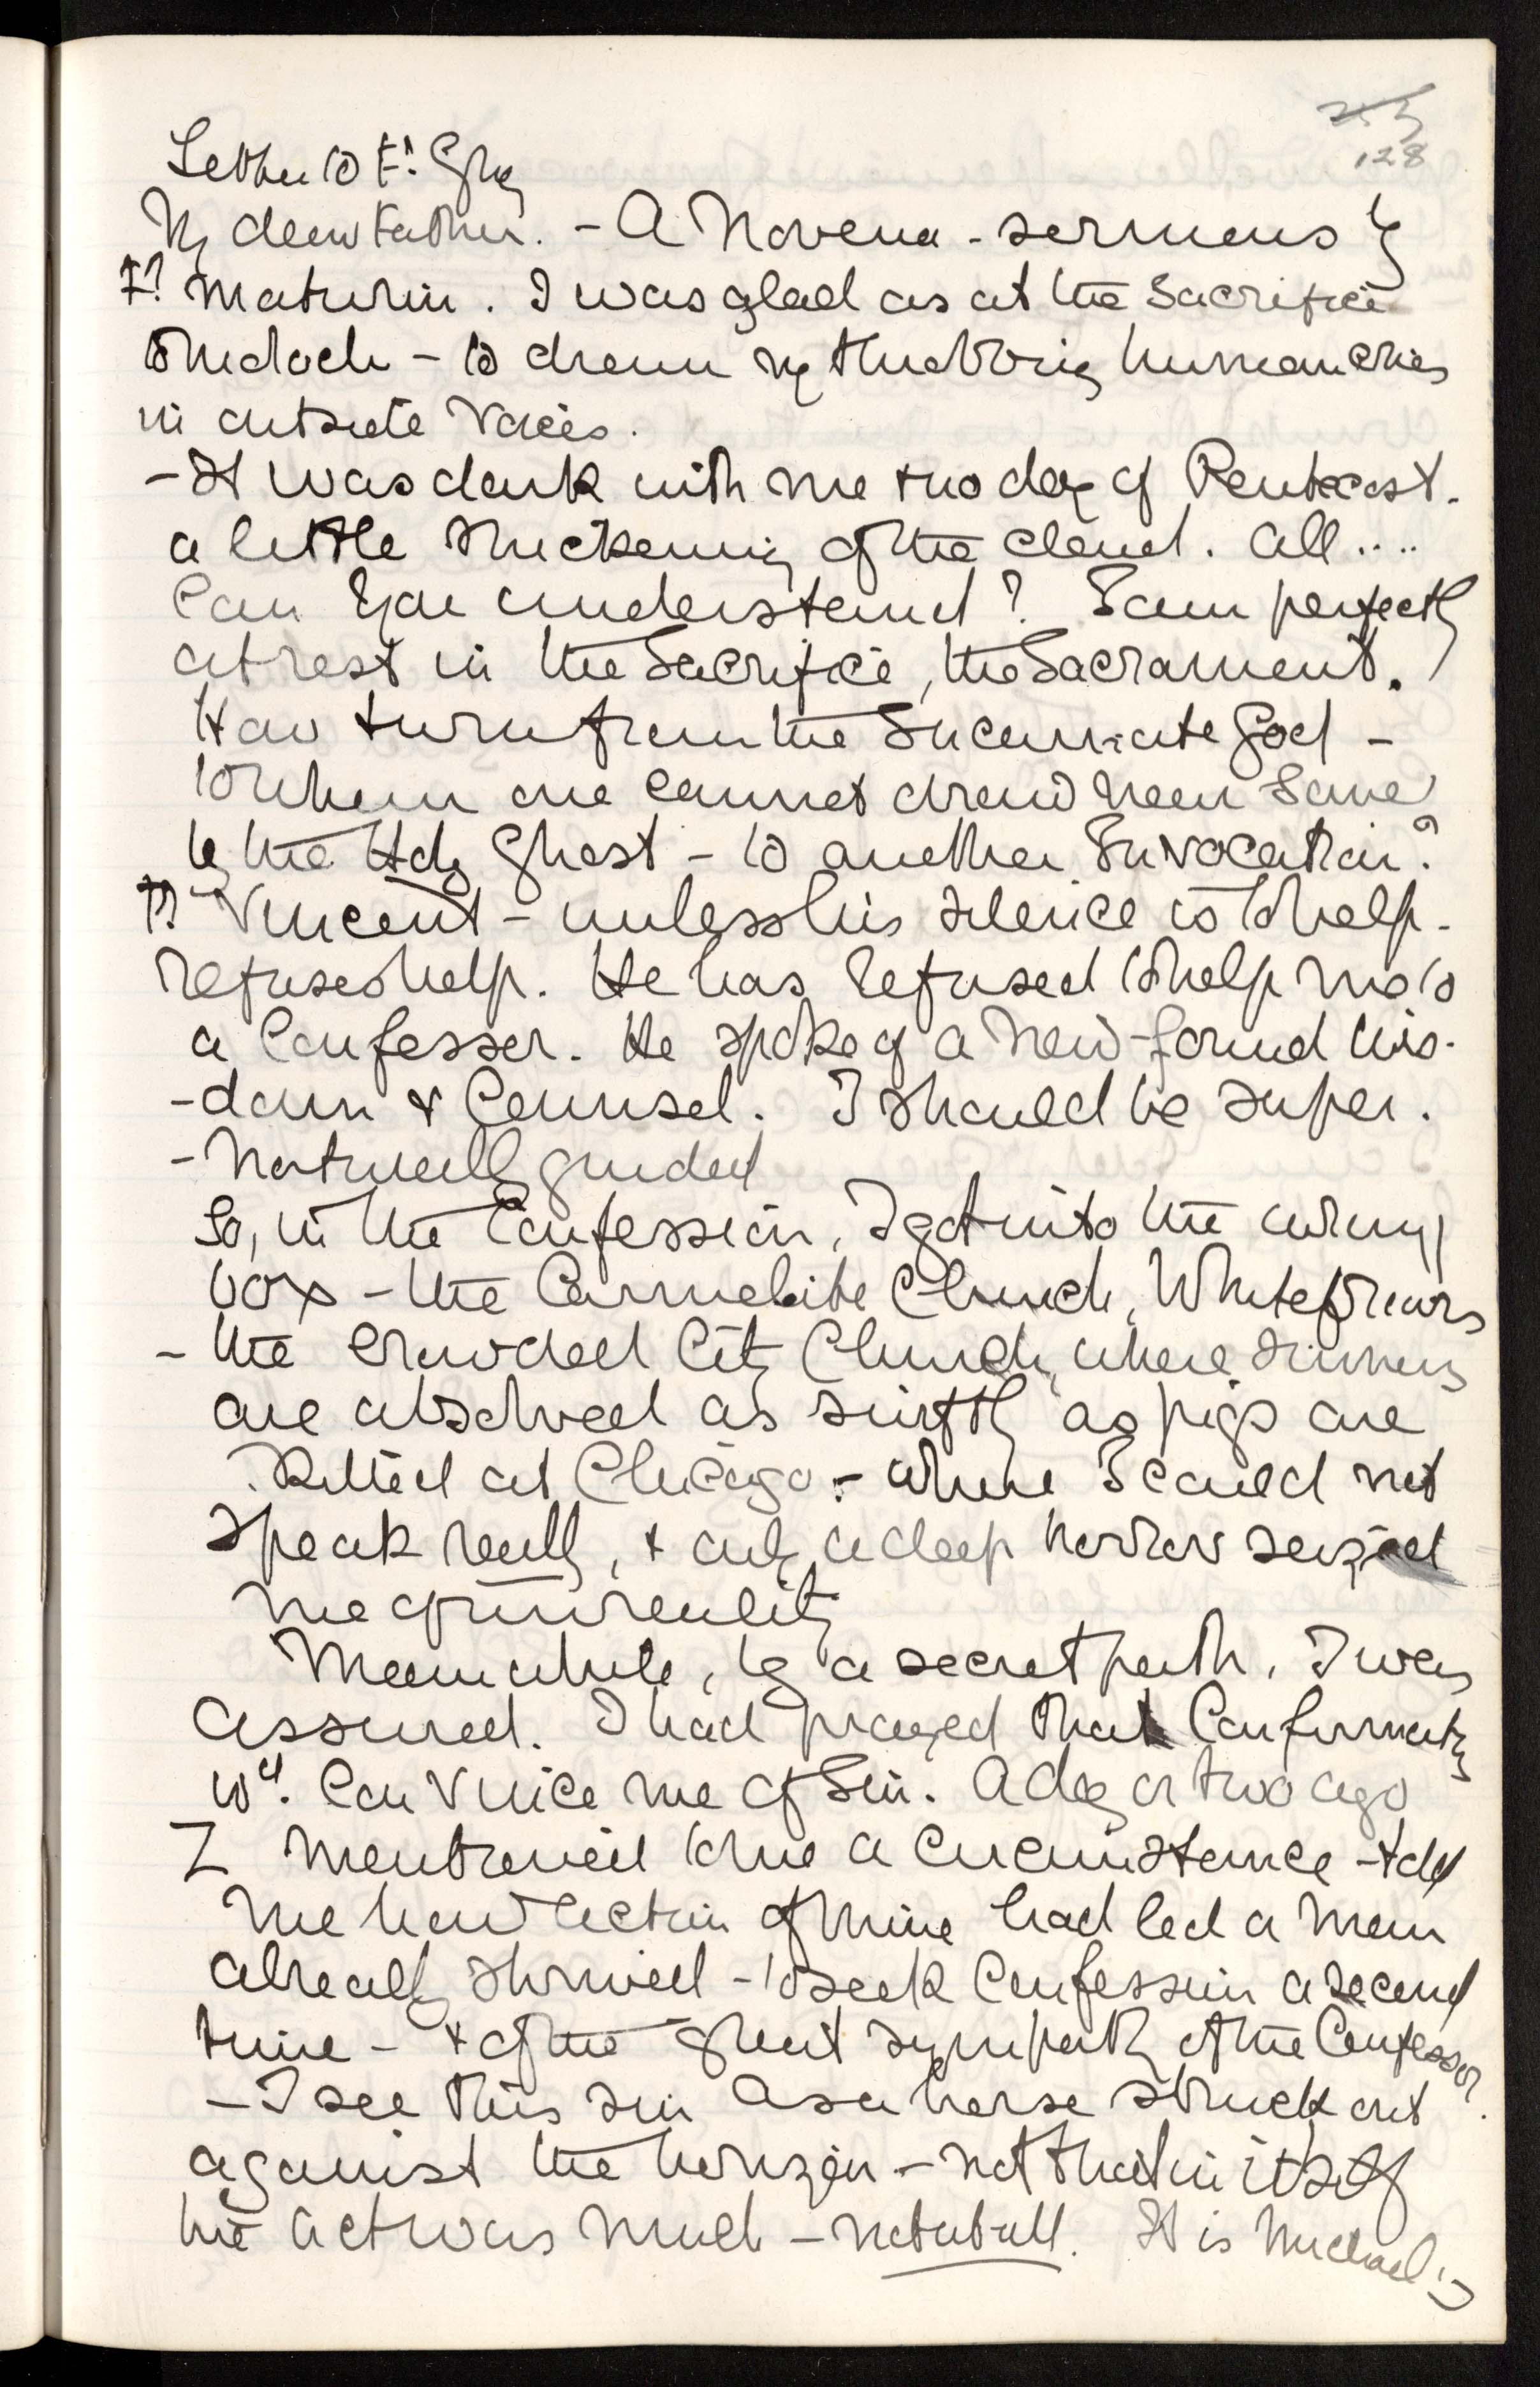 128
Letter to Fr. Gray
My dear Father. – A Novena – sermons by
Fr. Maturin. I was glad as at the Sacrifice
to Moloch – to drown my throbbing human cries
in outside voices.
– It was dark with me & no day of Pentecost.
a little thickening of the cloud. All ....
Can you understand? I am perfectly
at rest in the Sacrifice, the Sacrament.
How turn from the Incarnate God –
to whom one cannot draw near save
by the Holy Ghost – to another Invocation?
Fr. Vincent – unless his silence is to help –
refuses help. He has refused to help me to
a Confessor. He spoke of a new-found Wis-
-dom & Counsel. I should be super-
-naturally guided
So, in the Confession, I got into the wrong
box – the Carmelite Church, Whitefriars
– the crowded City Church, where sinners
are absolved as swiftly as pigs are
killed at Chicago – where I could not
speak really, & only a deep horror seized
me of unreality
Meanwhile, by a secret path, I was
assured. I had prayed that Conformity
wd. convince me of Sin. A day or two ago
mentioned to me a circumstance – told
me how action of mine had led a man
already shrived – to seek Confession a second
time – & of the great sympathy of the Confessor.
– I see this sin as a horse struck out
against the horizon – not that in itself
the act was much – not at all. It is Michael's